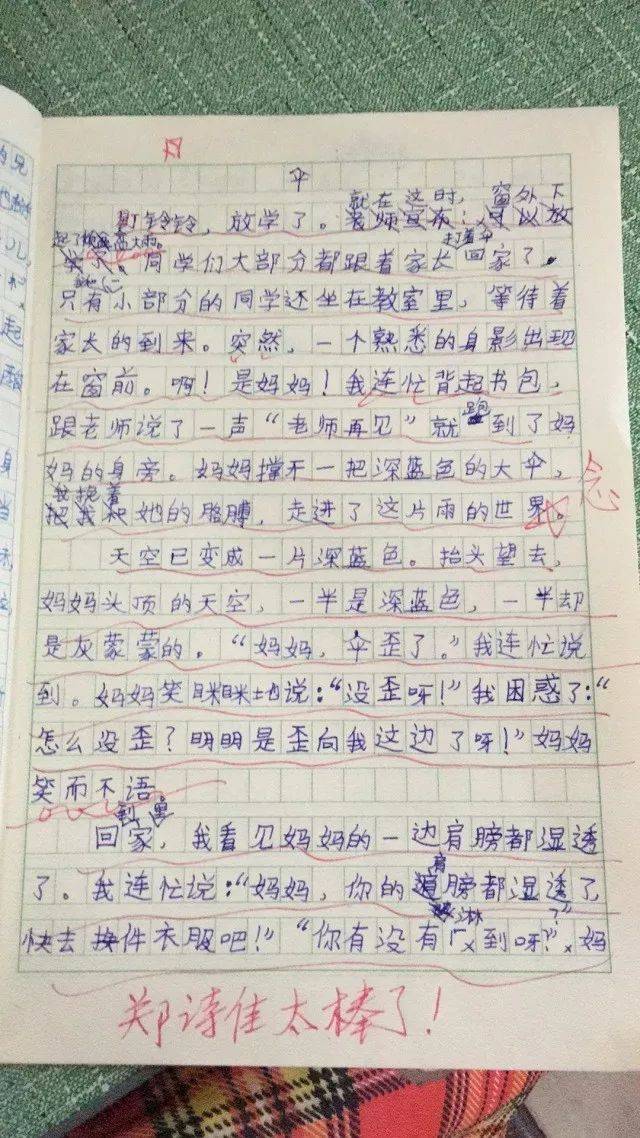 伞
就在这时，窗外下
叮铃铃，放学了。老师宣布：可以放
起了倾盆大雨。 打着伞
学了。同学们大部分都跟着家长回家了。
只有小部分的同学还坐在教室里，等待着
家长的到来。突然，一个熟悉的身影出现
在窗前。啊！是妈妈！我连忙背起书包，
跟老师说了一声“老师再见”就跑到了妈
妈的身旁。妈妈撑开一把深蓝色的大伞，
我挽着
把我和她的胳膊，走进了这片雨的世界。
天空已变成一片深蓝色。抬头望去，
妈妈头顶的天空，一半是深蓝色，一半却
是灰蒙蒙的。“妈妈，伞歪了。”我连忙说
到。妈妈笑眯眯地说：“没歪呀！”我困惑了：“
怎么没歪？明明是歪向我这边了呀！”妈妈
笑而不语。
到 里
回家，我看见妈妈的一边肩膀都湿透
了。我连忙说：“妈妈，你的肩膀都湿透了
淋 ？”
快去换件衣服吧！”“你有没有到呀？”妈
郑诗佳太棒了！